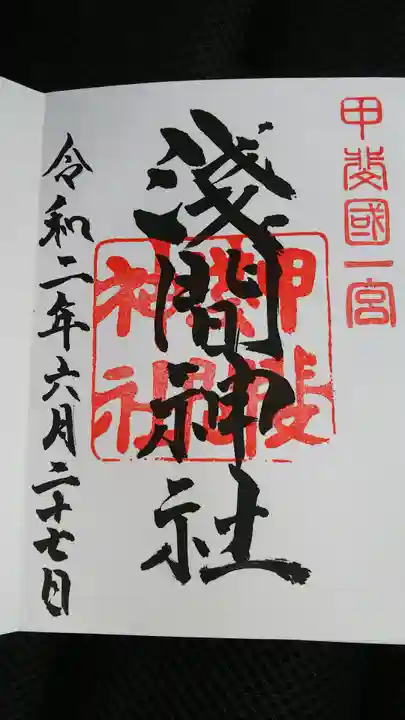 甲斐國一宮
淺間神社
令和二年六月二十七日